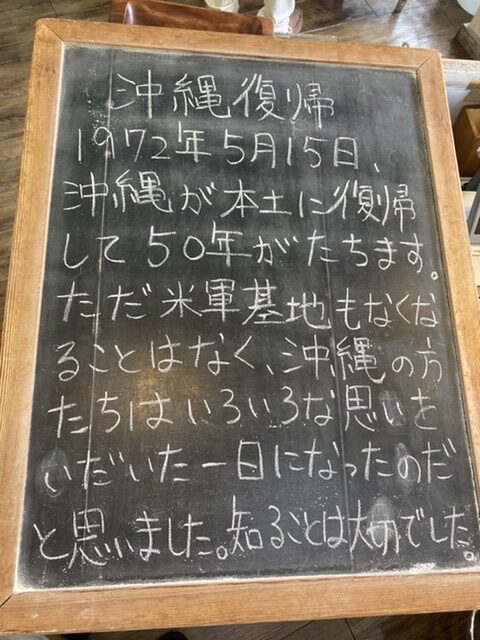 沖縄復帰
1972年5月15日、
沖縄が本土に復帰
して50年がたちます。
ただ米軍基地もなくな
ることはなく、沖縄の方
たちはいろいろな思いを
いだいた一日になったのだ
と思いました。知ることは大切でした。